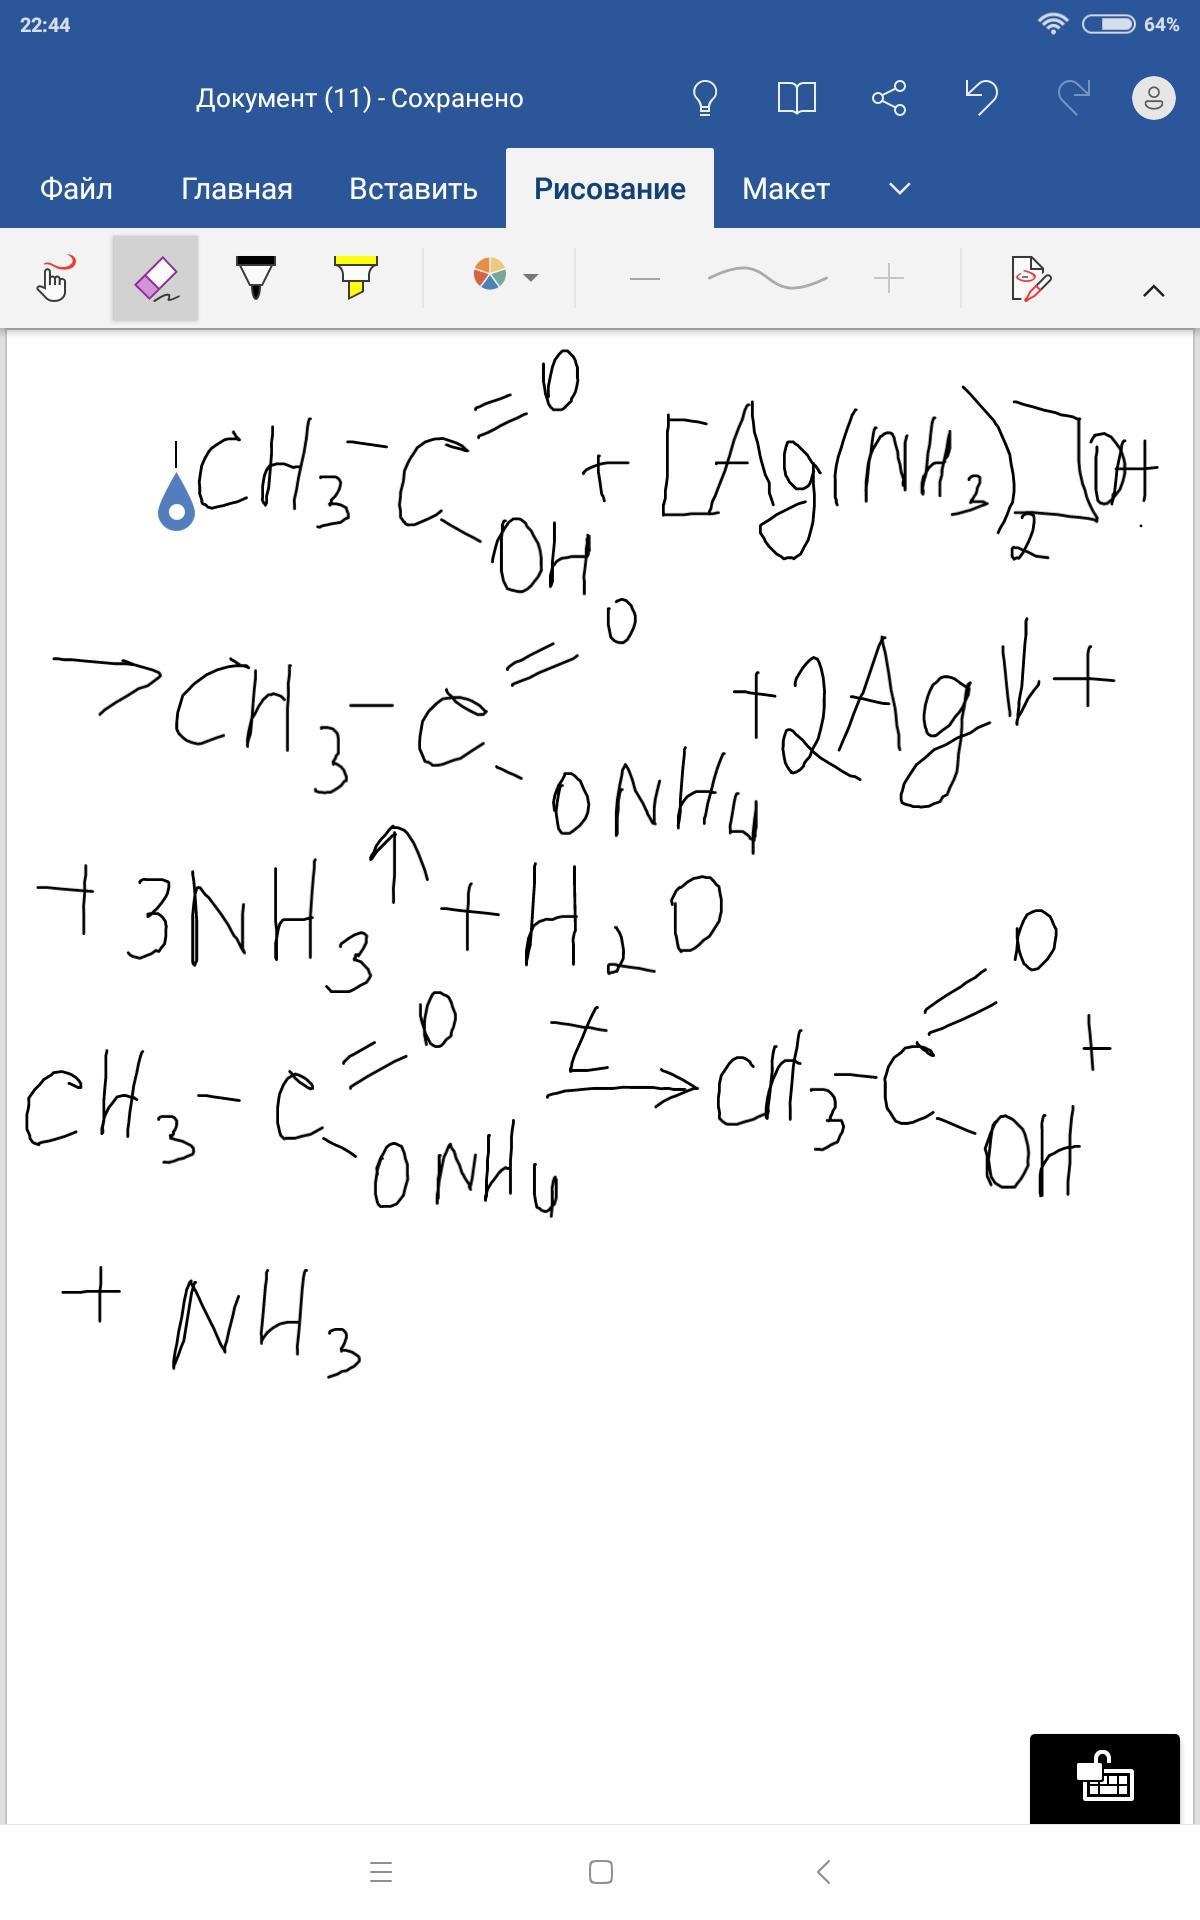 22:44 64%
Документ (11) - Сохранено
Файл Главная Вставить Рисование Макет
CH₃-C=O OH + [Ag(NH₃)₂]OH
→ CH₃-C=O ONH₄ + 2Ag↓ +
+ 3NH₃↑ + H₂O
CH₃-C=O ONH₄ t→ CH₃-C=O OH +
+ NH₃